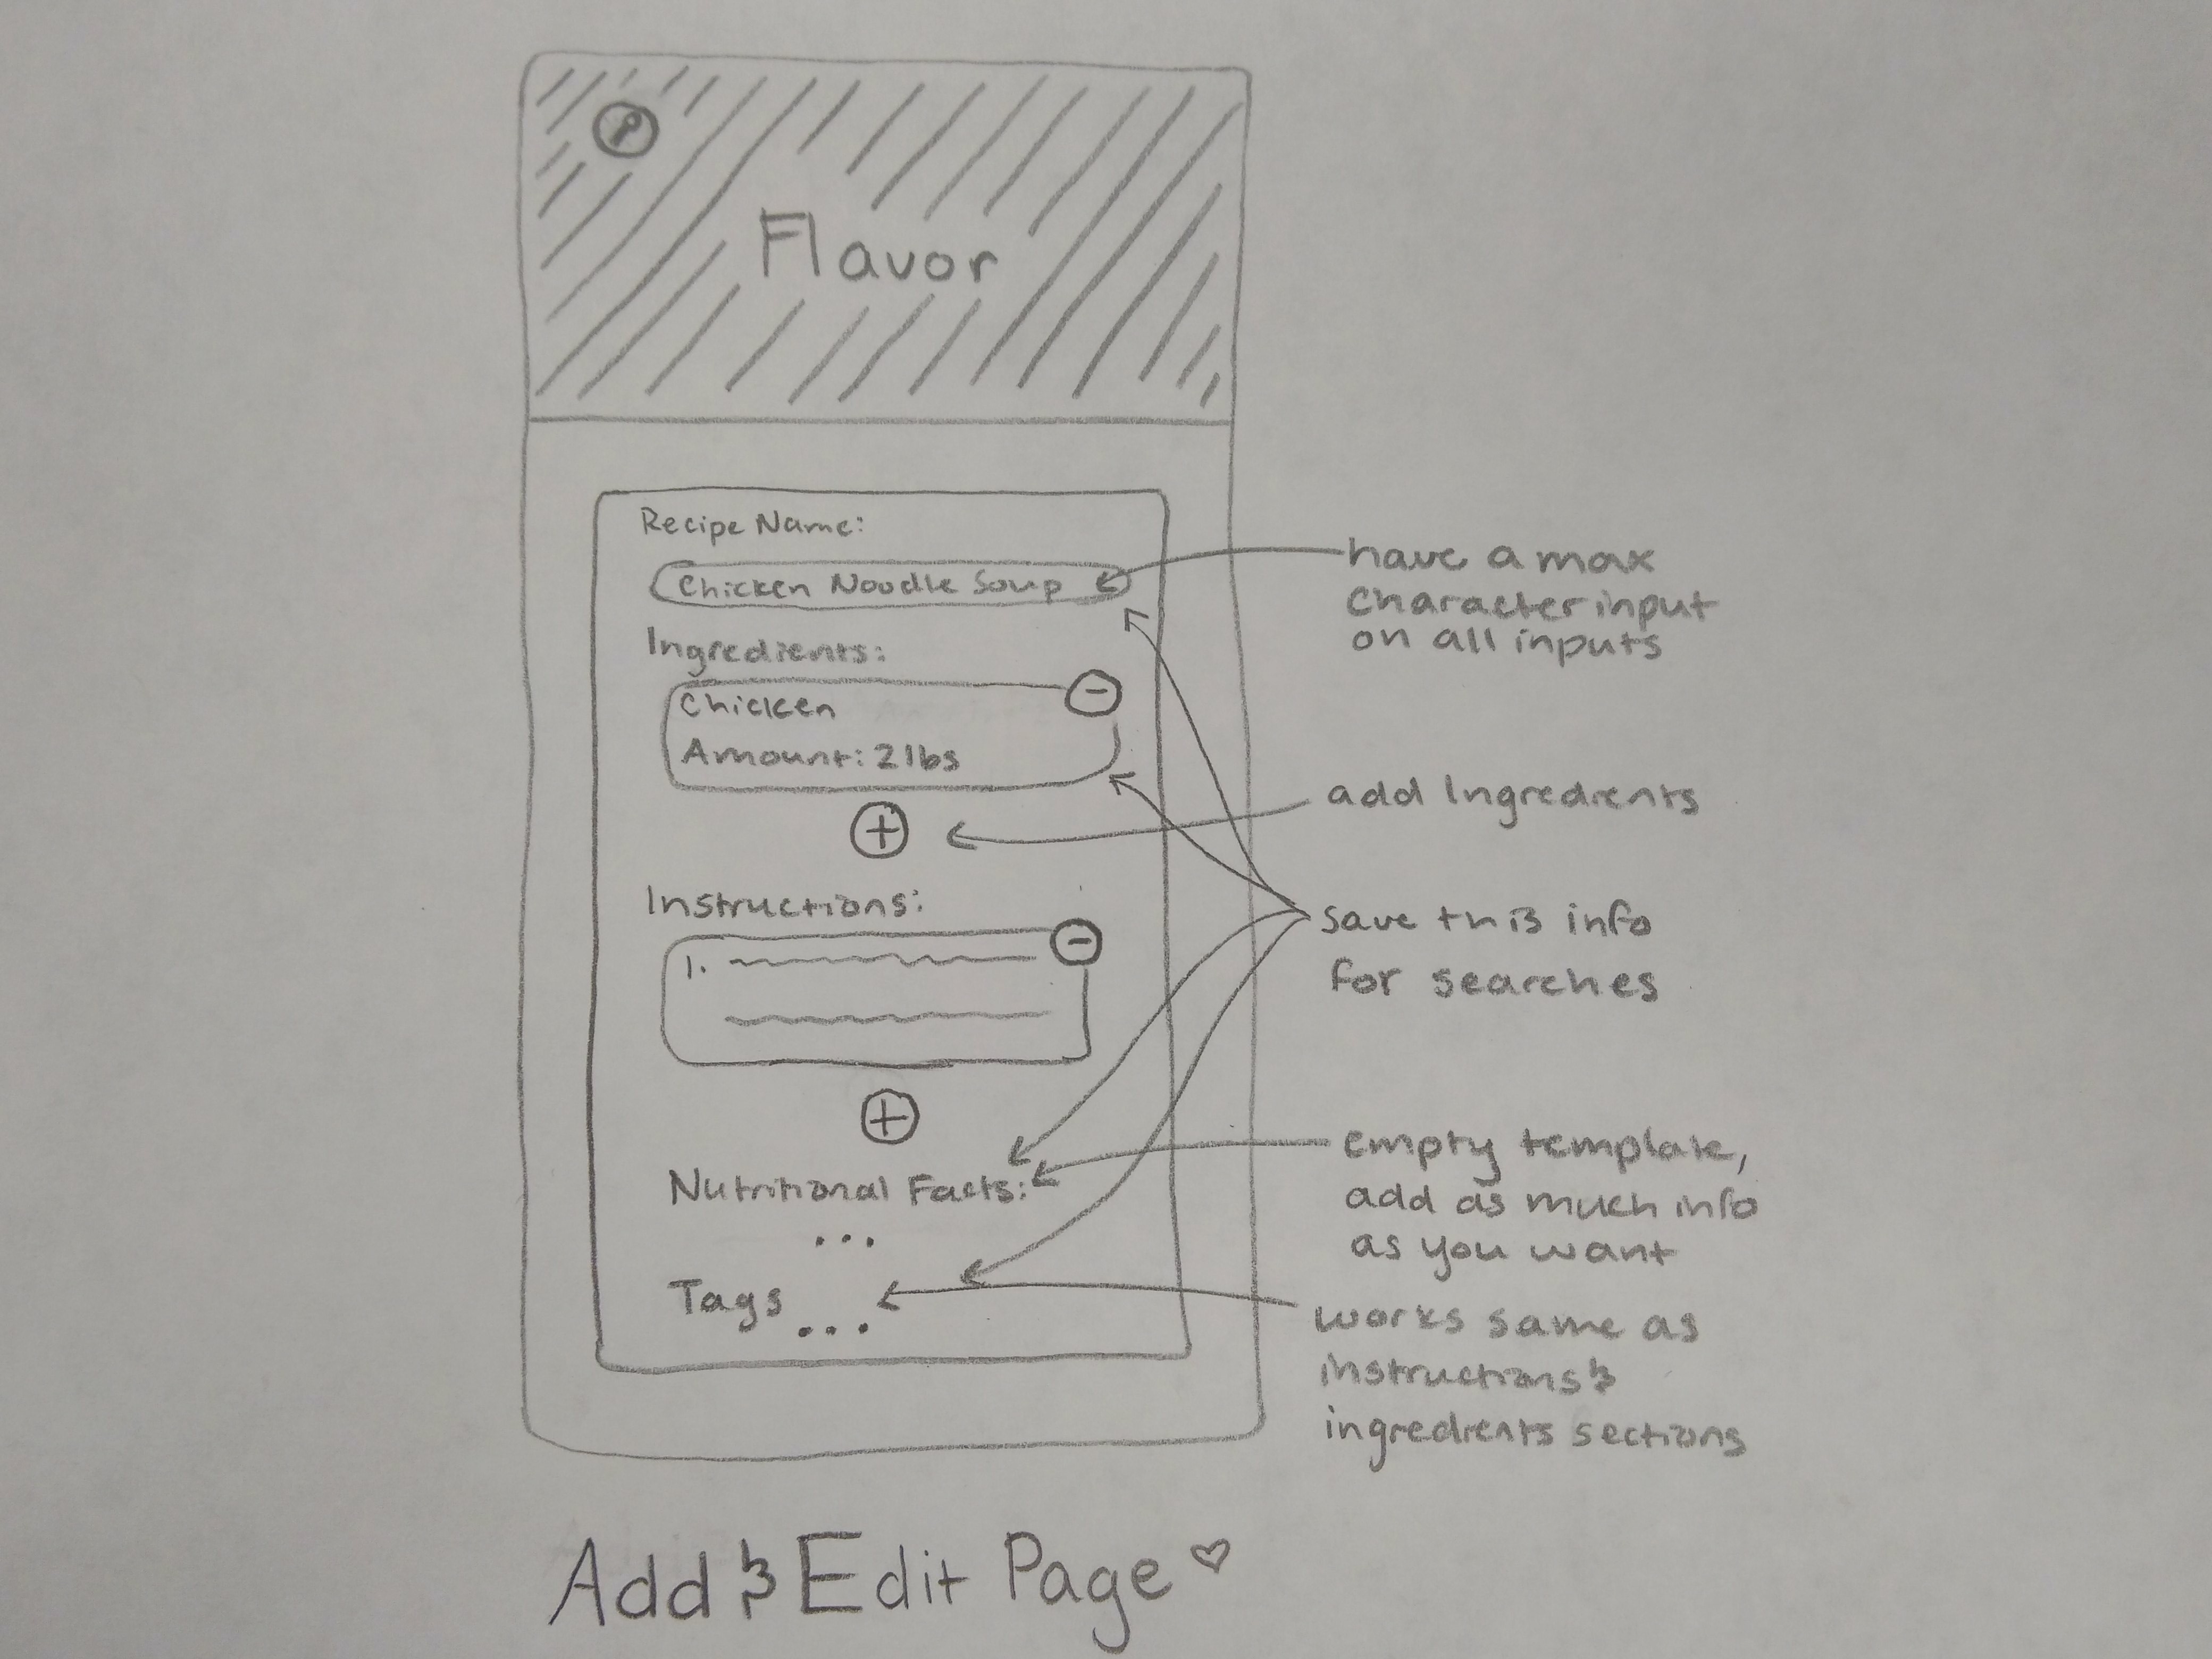 Flavor
Recipe Name:
Chicken Noodle Soup
Ingredients:
Chicken
Amount: 2lbs
Instructions:
1.
Nutritional Facts:
...
Tags
...
have a max
character input
on all inputs
add Ingredients
save this info
for searches
empty template,
add as much info
as you want
works same as
instructions &
ingredients sections
Add & Edit Page ♡